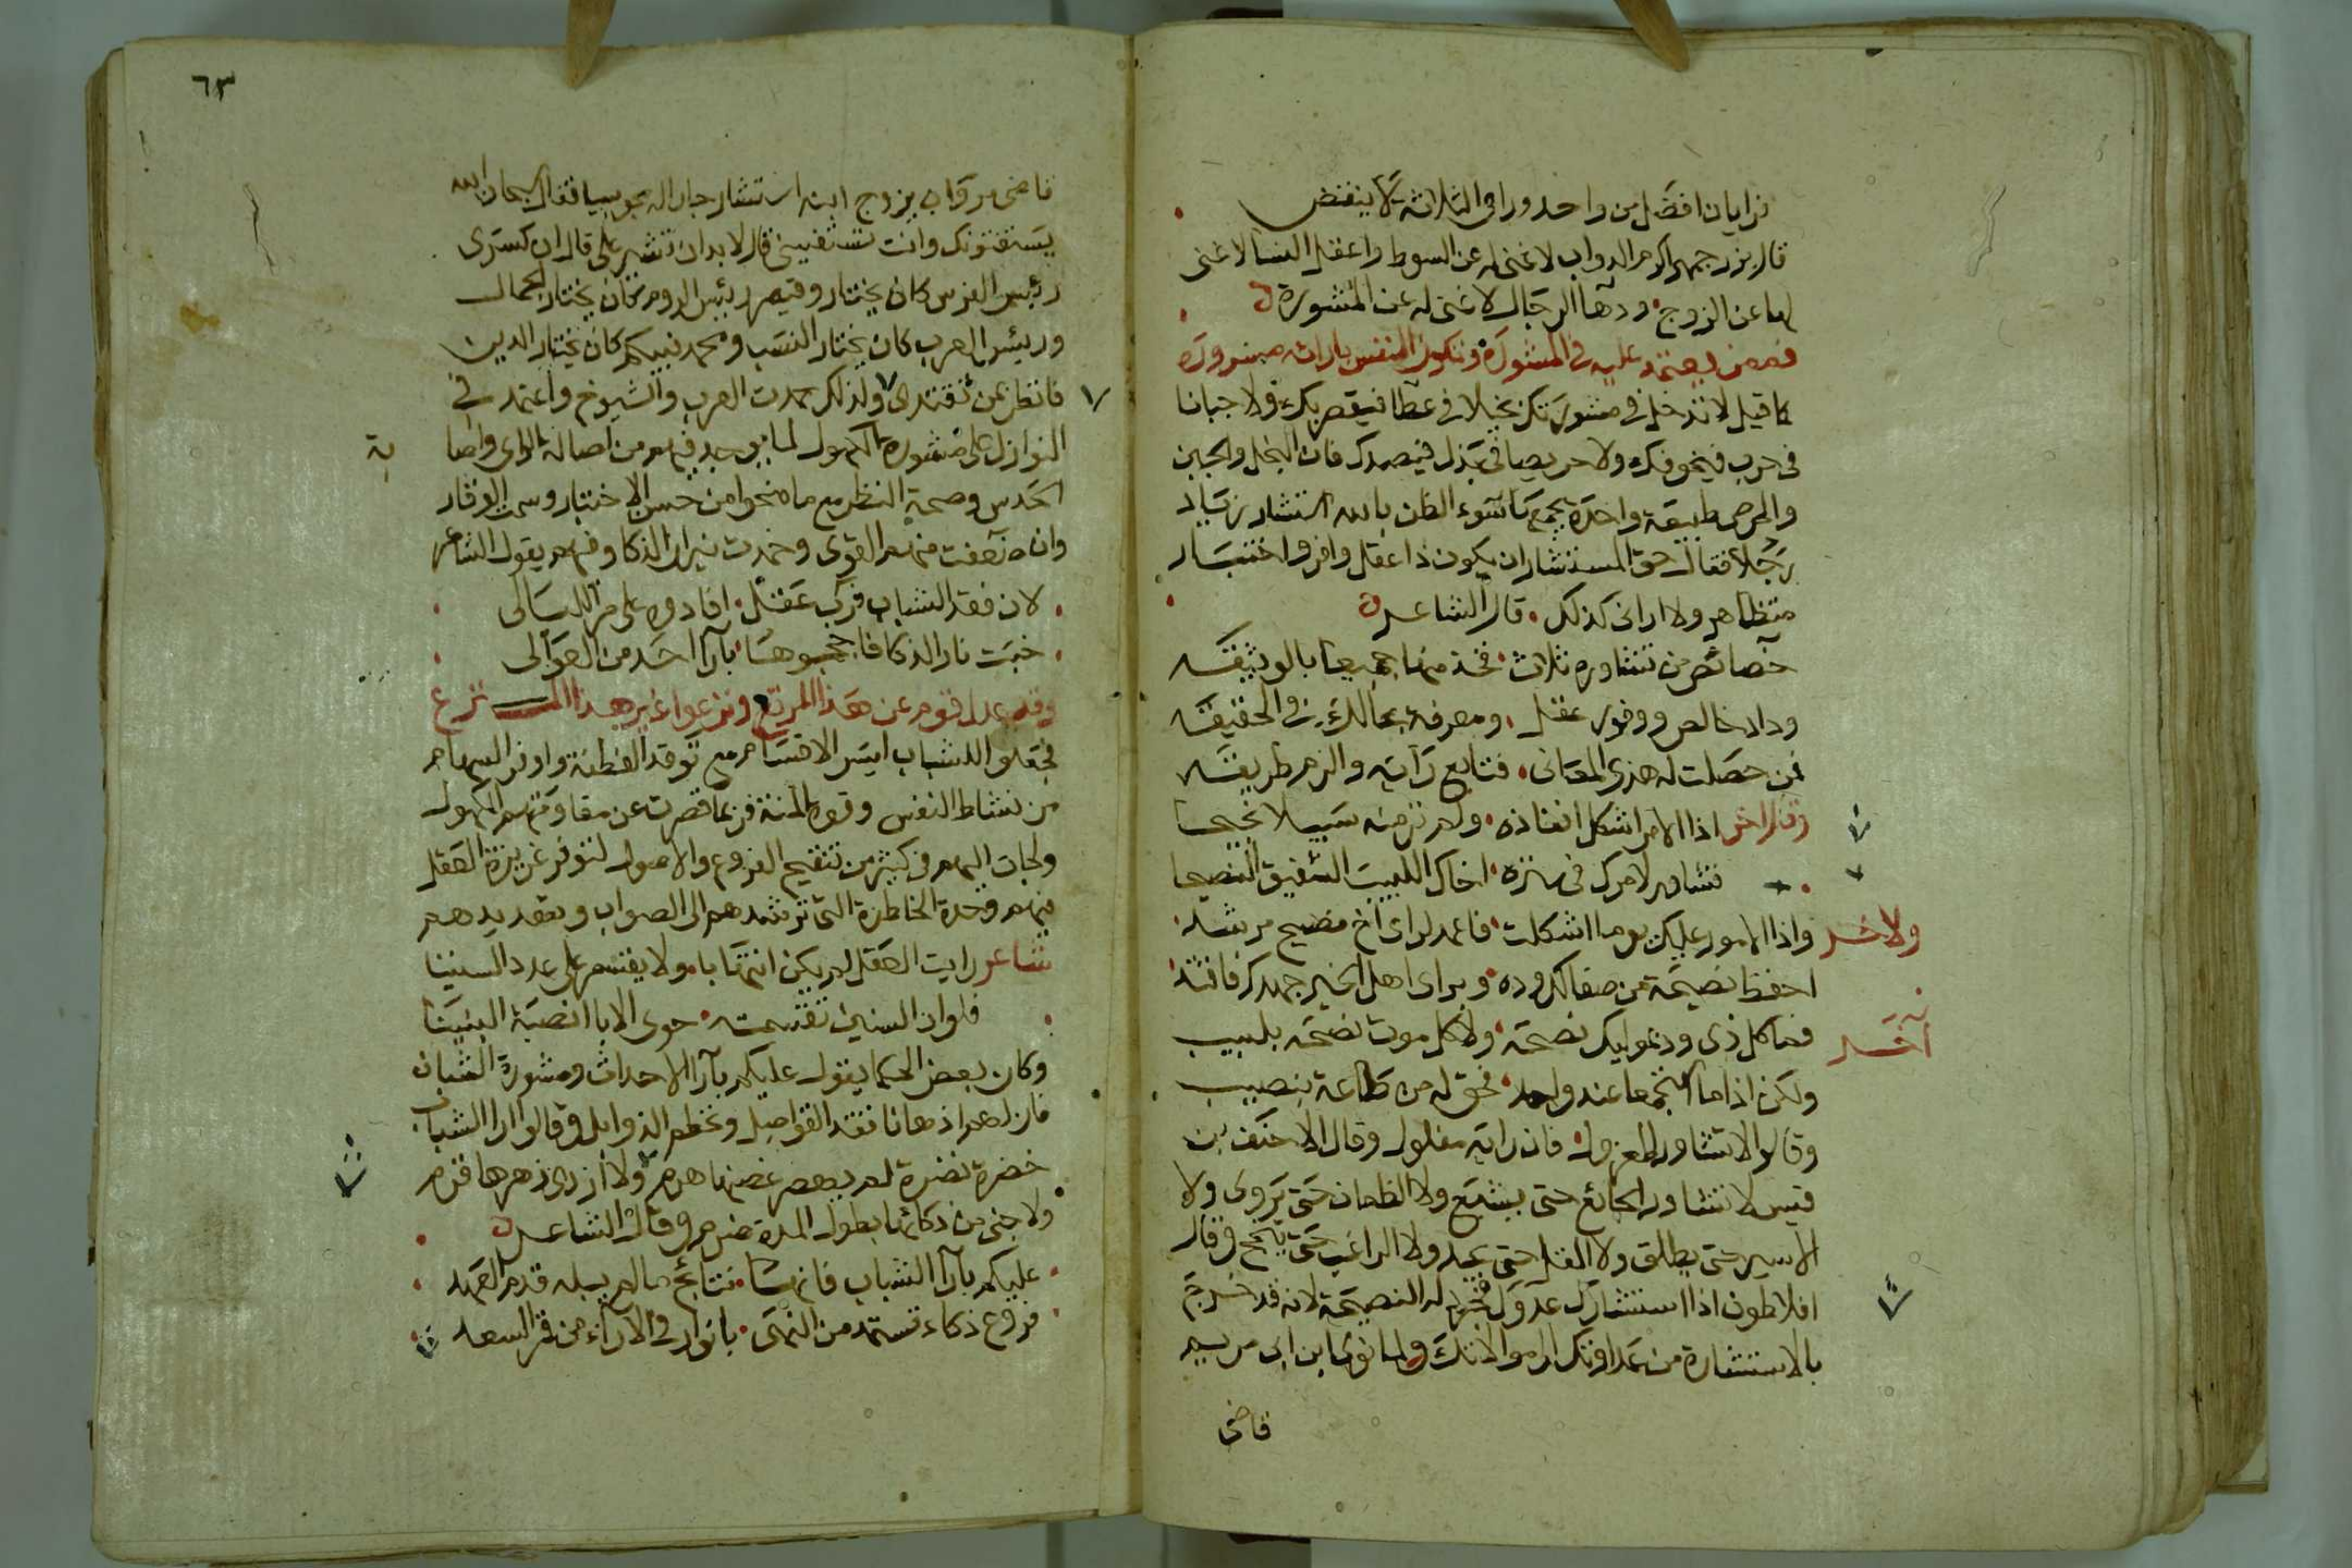 فرايان افضل من واحد وراى الثلاثة لا ينقض
قال بزرجمهر اكرم الدواب لا غنى له عن السوط واعقل النسا لا غنى
لها عن الزوج ودهاة الرجال لا غنى له عن المشورة
فممن يعتمد عليه فى المشورة وتكون النفس بارائه مسرورة
كما قيل لا تدخل فى مشورتك بخيلا فى عطا فيقصر بك ولا جبانا
فى حرب فيخوفك ولا حريصا فى بذل فيصدك فان البخل والجبن
والحرص طبيعة واحدة يجمعها سوء الظن بالله استشار زياد
رجلا فقال حق المستشار ان يكون ذا عقل وافر واختبار
متظاهر ولا ارانى كذلك قال الشاعر
خصائص من تشاوره ثلاث فخذ منها جميعا بالوثيقه
وداد خالص ووفور عقل ومعرفة بحالك فى الحقيقه
فمن حصلت له هذى المعانى فتابع رايه والزم طريقه
وقال اخر اذا الامر اشكل انفاذه ولم تر منه سبيلا نجيحا
فشاور لامرك فى سترة اخاك اللبيب الشفيق النصيحا
ولاخر واذا الامور عليك يوما اشكلت فاعمد لراى اخ نصيح مرشد
احفظ نصيحة من صفا لك وده وبراى اهل الخير جهدك فاقتد
آخر فما كل ذى ود بموليك نصحه ولا كل موت نصحه بلبيب
ولكن اذا ما استجمعا عند واحد فحق له من طاعة بنصيب
وقالوا لا تشاور المعزول فان رايه مفلول وقال الاحنف بن
قيس لا تشاور الجائع حتى يشبع ولا الظمان حتى يروى ولا
الاسير حتى يطلق ولا المقل حتى يجد ولا الراغب حتى ينجح وقال
افلاطون اذا استشارك عدوك فجرد له النصيحة لانه قد خرج
بالاستشارة من عداوتك الى موالاتك ولما نوى ابن ابى مريم
قاضى
٦٣
قاضى مرو ان يزوج ابنه استشار جارا له مجوسيا فقال سبحان الله
يستفتونك وانت تستفتينى قال لا بد ان تشير على قال ان كسرى
رئيس الفرس كان يختار وقيصر رئيس الروم كان يختار الجمال
ورئيس العرب كان يختار النسب ومحمد نبيكم كان يختار الدين
فانظر بمن تقتدى ولذلك حمدت العرب والشيوخ واعتمد فى
النوازل على مشورة الكهول لما يوجد فيهم من اصالة الراى واصا
بة
الحدس وصحة النظر مع ما منحوا من حسن الاختبار وسمت الوقار
وان ضعفت منهم القوى وخمدت نيران الذكا وفيهم يقول الشاعر
لان فقد الشباب فرب عقل افادوه على مر الليالى
خبت نار الذكا فاججوها بآرا احد من العوالى
وقد عدل قوم عن هذا المرتع ونزعوا غير هذا المنزع
فجعلوا للشباب ايسر الاقسام مع توقد الفطنة واوفر السهام
من نشاط النفس وقوة المنة فربما قصرت عن مقاومتهم الكهول
ولجات اليهم فى كثير من تنقيح الفروع والاصول لتوفر غريزة العقل
فيهم وحدة الخاطرة التى ترشدهم الى الصواب وتهديهم
شاعر رايت العقل لم يكن انتهابا ولا يقسم على عدد السنينا
فلو ان السنين تقسمت حوى الابا انصبة البنينا
وكان بعض الحكما يقول عليكم بآرا الاحداث ومشورة الشبان
فان لهم اذهانا تفقد الفواصل وتحطم الذوابل وقالوا ارا الشباب
خضرة نضرة لم يهصر غصنها هرم ولا ازوى زهرها قدم
ولا خبى من ذكائها بطول المدة ضرم وقال الشاعر
عليكم بآرا الشباب فانها نتائج ما لم يبله قدم العهد
فروع ذكاء تستمد من النهى بانوار فى الآراء من قمر السعد